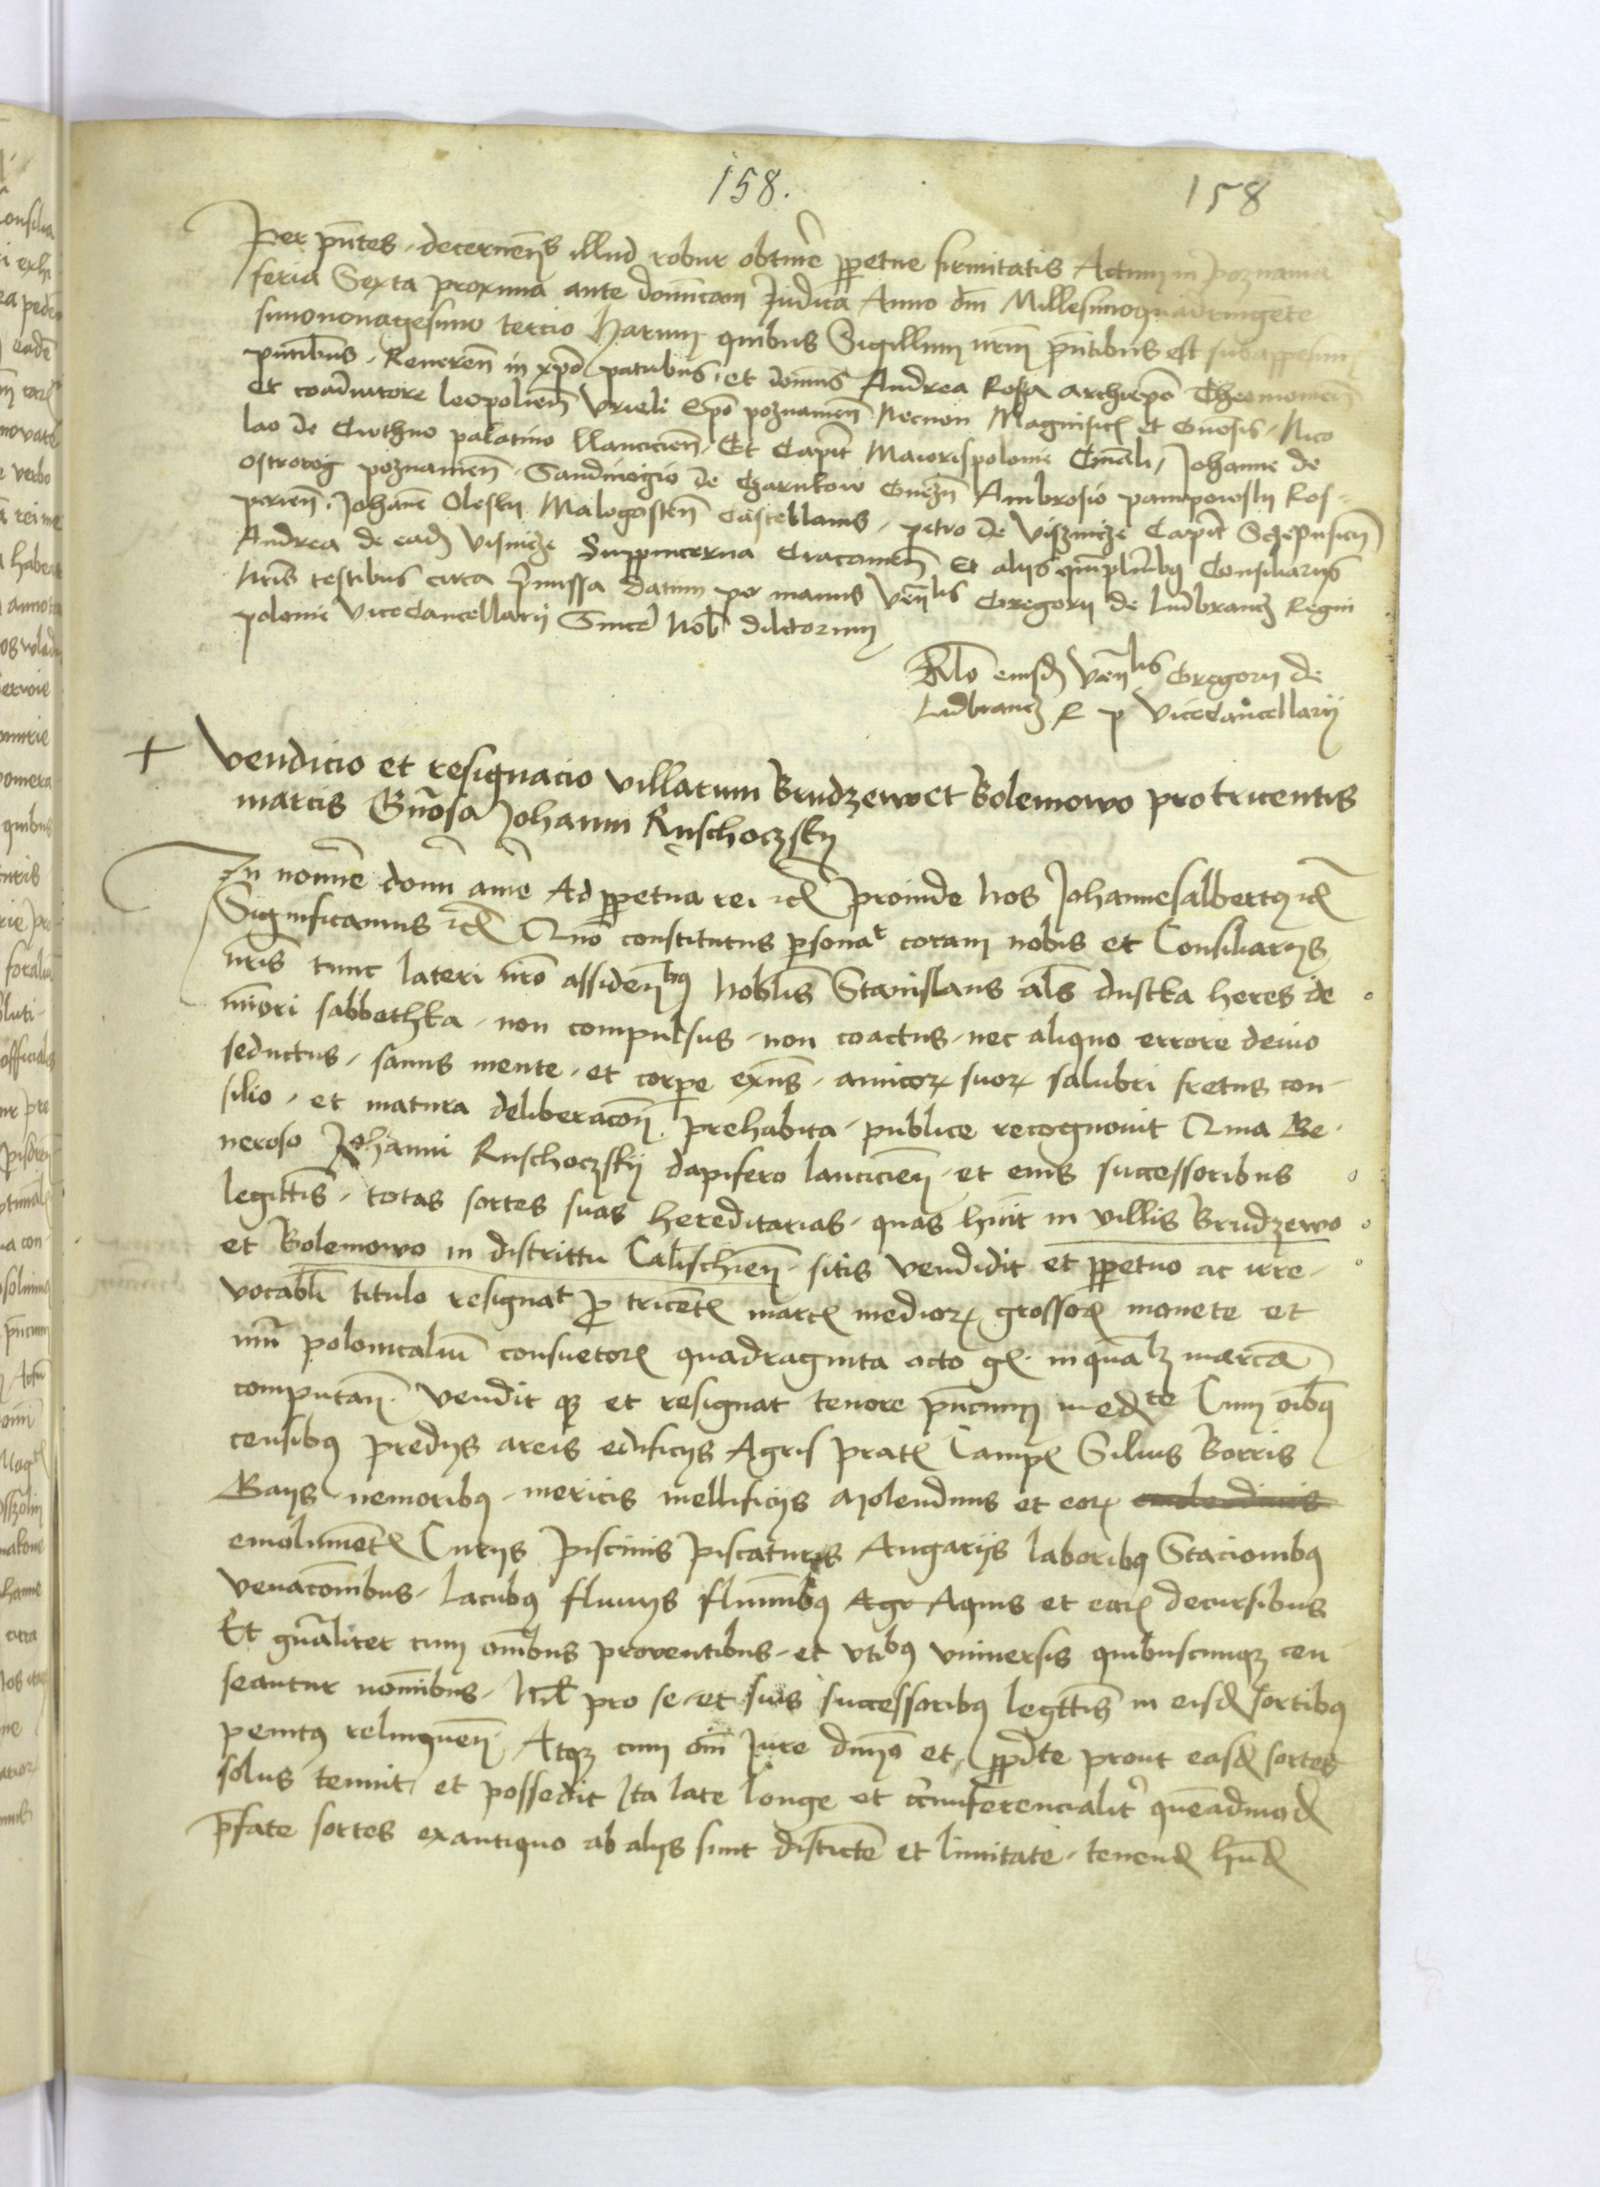 158. 158
Per pntes decernens illud robur obtinere ppetue firmitatis Actum in poznania
feria Sexta proxima ante dominicam Judica Anno dni Millesimoquadringente
simononagesimo tercio harum quibus Sigillum nrm pntibus est subappensum
pntibus Reueren in xpo patribus et domnis Andrea Rosa archiepo
et coadiutore leopolien Vrieli Epo poznanien Necnon Magnificis et Gnosis Nico
lao de Cuthno palatino llancicien Et Capit Maiorispolonie Gnali Johanne de
ostrorog poznanien Sandiuogio de Czarnkow Gnezn Ambrosio pampowsky Ros
perien Johane Olesky Malogosten Castellanis petro de Visznicze Capit Sczepusien
Andrea de ead Visnicze Suppincerna Cracouien Et alijs qmplribus Consiliarijs
Nris testibus circa pmissa datum per manus Venlis Gregorij de ludbrancz Regni
polonie Vicecancellarij Sincere Nob dilectorum
Rlo eiusd Venlis Gregorij de
Ludbrancz R p Vicecancellarij
+ Vendicio et resignacio villarum Brudzewo et Bolemowo pro tricentis
marcis Gnoso Johanni Ruschoczsky
In nomine domi ame Ad ppetua rei etc proinde Nos Johannesalbertus etc
Significamus etc Quo constitutus psonat coram nobis et Consiliarijs
nris tunc lateri nro assidenbus Noblis Stanislaus als dustka heres de
miori sabbethka non compulsus non coactus nec aliquo errore deuio
seductus sanus mente et corpe exns amicor suor salubri fretus con
silio et matura deliberacon prehabita publice recognouit Quia Ge
neroso Johanni Ruschoczsky dapifero lancicien et eius successoribus
legittis totas sortes suas hereditarias quas huit in villis Brudzewo
et Bolemowo in districtu Calischien sitis vendidit et ppetuo ac irre
vocabli titulo resignat p tricentis marcis medior grossor monete et
nui polonicaliu consuetor quadraginta octo gr in qualz marca
computan Vendit qz et resignat tenore pncium medte Cum oibus
censibus predijs areis edificijs Agris pratis Campis Siluis Borris
Gays nemoribus mericis mellificijs Molendinis et eor
emolumentis Curijs piscinis piscaturis Angarijs laboribus Stacionibus
venacombus lacubus fluuijs fluminibus Agr Aquis et ear decursibus
Et gnaliter cum omnibus prouentibus et vtibus vniuersis quibuscunqz cen
seantur nominibus Nil pro se et suis successoribus legttis in eisd sortibus
penitus relinquen Atqz cum omi Jure dmio et ppdte prout easd sortes
solus tenuit et possedit Ita late longe et circumferencialiter queadmod
pfate sortes exantiquo ab alijs sunt disticte et limitate tenend hnd